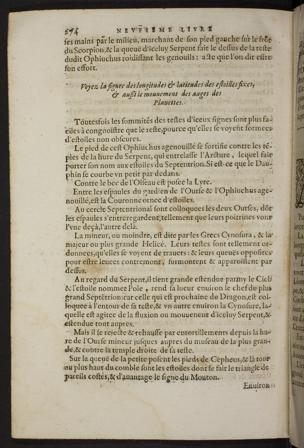 574 NEVFIEME LIVRE
ses mains par le milieu, marchans de son pied gauche sur le frõt
du Scorpion, & la queuë d'iceluy Serpent fait le dessus de la teste
dudit Ophiuchus roidissant les genouils: à ce que l'on dit estre
son effort.
Voyez la figure des longitudes & latitudes des estoilles fixes,
& aussi le mouuement des auges des
Planettes.
Toutesfois les sommités des testes d'iceux signes sont plus fa-
ciles à congnoistre que le reste, pource qu'elles se voyent formees
d'estoilles non obscures.
Le pied de cest Ophiuchus agenouillé se fortifie contre les té-
ples de la hure du Serpent, qui entrelasse l'Arcture, lequel fait
porter son nom aux estoilles du Septentrion. Si est-ce que le Dau-
phin se courbe vn petit par dedans.
Contre le bec de l'Oiseau est posee la Lyre.
Entre les espaules du gardien de l'Ourse & l'Ophiuchus age-
nouillé, est la Couronne ornee d'estoilles.
Au cercle Septentrional sont colloquees les deux Ourses, dõt
les espaules s'entreregardent, tellement que leurs poitrines vont
l'vne deçà, l'autre delà.
La mineur, ou moindre, est dite par les Grecs Cynosura, & la
majeur ou plus grande Helicé. Leurs testes sont tellement or-
donnees, qu'elles se voyent de trauers: & leurs queuës opposites
pour estre leurees contrement, surmontent & apparoissent par
dessus.
Au regard du Serpent, il tient grande estendue parmy le Ciel:
& l'estoile nommee Pole, rend sa lueur enuiron le chef du plus
grand Septétrion: car celle qui est prochaine du Dragon, est col-
loquee à l'entour de sa teste, & va outre enuiron la Cynosure, la-
quelle est agitee de la fluxion ou mouuement d'iceluy Serpent, &
estendue tout aupres.
Mais il se reiecte & rehausse par entortillemens depuis la hu-
re de l'Ourse mineur jusques aupres du museau de la plus gran-
de, & contre la temple droite de sa teste.
Sur la queue de la petite posent les pieds de Cepheus, & là tout
au plus haut du comble sont les estoiles dont se fait le triangle de
pareils costés, & d'auantage le signe du Mouton.
Enuiron